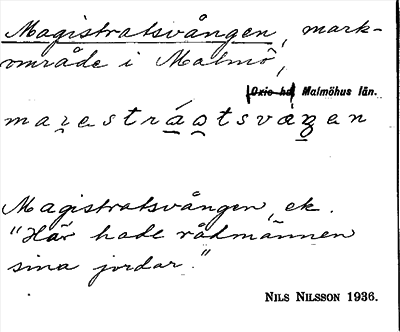 Magistratsvången, mark-
område i Malmö,
Oxie hd Malmöhus län.
Magistratsvången, ek.
"Här hade rådmännen
sina jordar."
NILS NILSSON 1936.